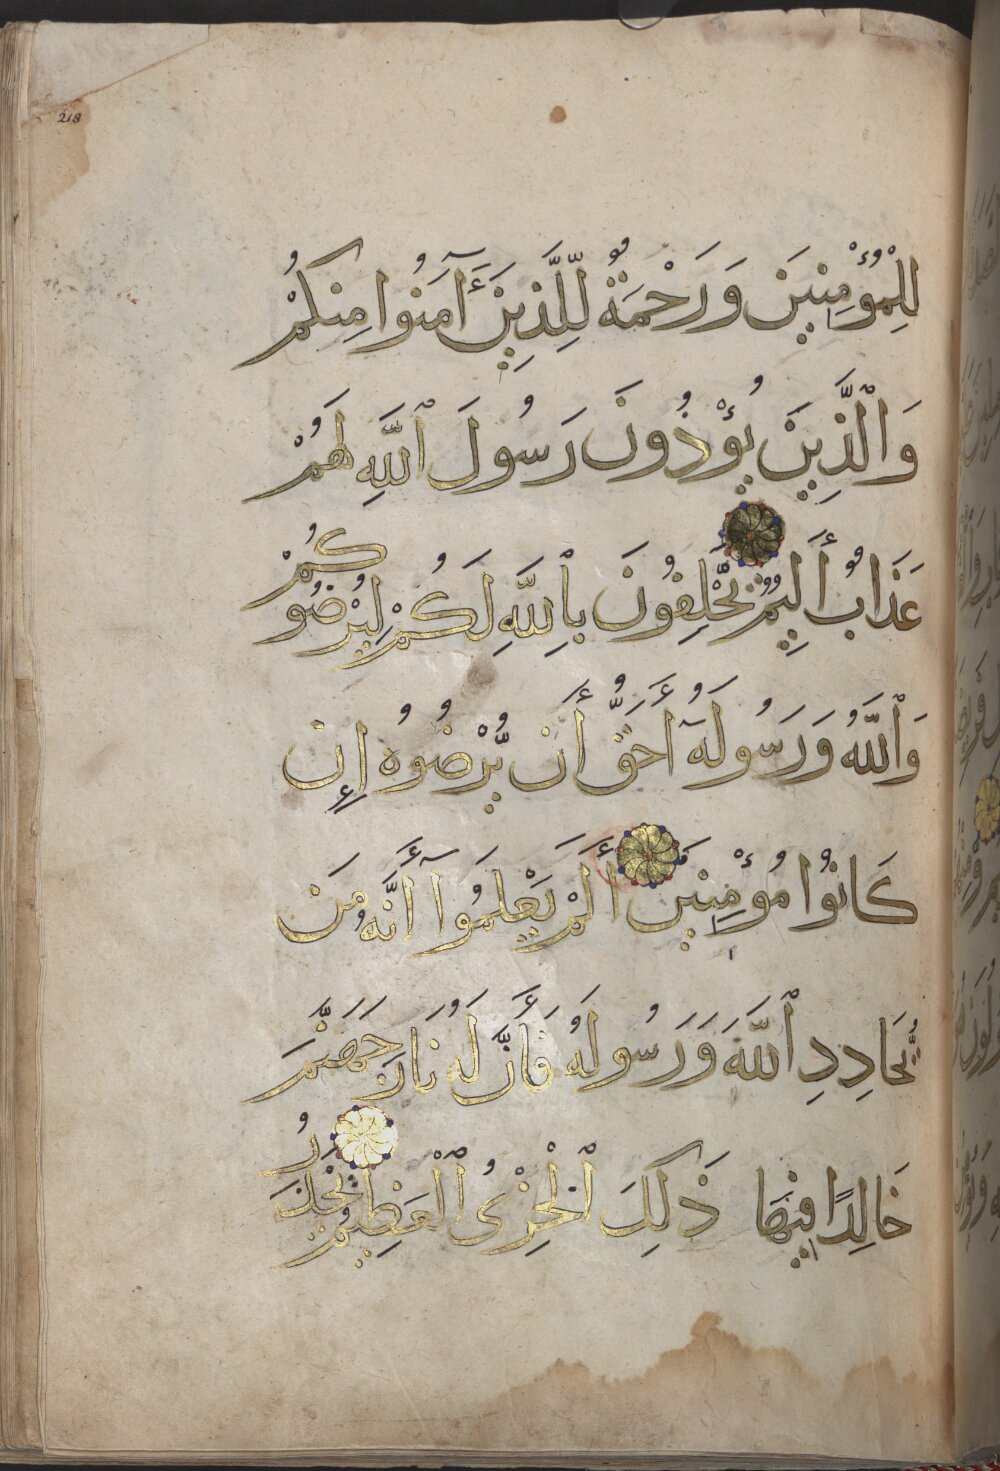 218
لِلْمُؤْمِنِينَ وَرَحْمَةٌ لِّلَّذِينَ ءَامَنُوا مِنكُمْ
وَالَّذِينَ يُؤْذُونَ رَسُولَ اللَّهِ لَهُمْ
عَذَابٌ أَلِيمٌ يَحْلِفُونَ بِاللَّهِ لَكُمْ لِيُرْضُوكُمْ
وَاللَّهُ وَرَسُولُهُ أَحَقُّ أَن يُرْضُوهُ إِن
كَانُوا مُؤْمِنِينَ أَلَمْ يَعْلَمُوا أَنَّهُ مَن
يُحَادِدِ اللَّهَ وَرَسُولَهُ فَأَنَّ لَهُ نَارَ جَهَنَّمَ
خَالِدًا فِيهَا ذَلِكَ الْخِزْىُ الْعَظِيمُ يَحْذَرُ